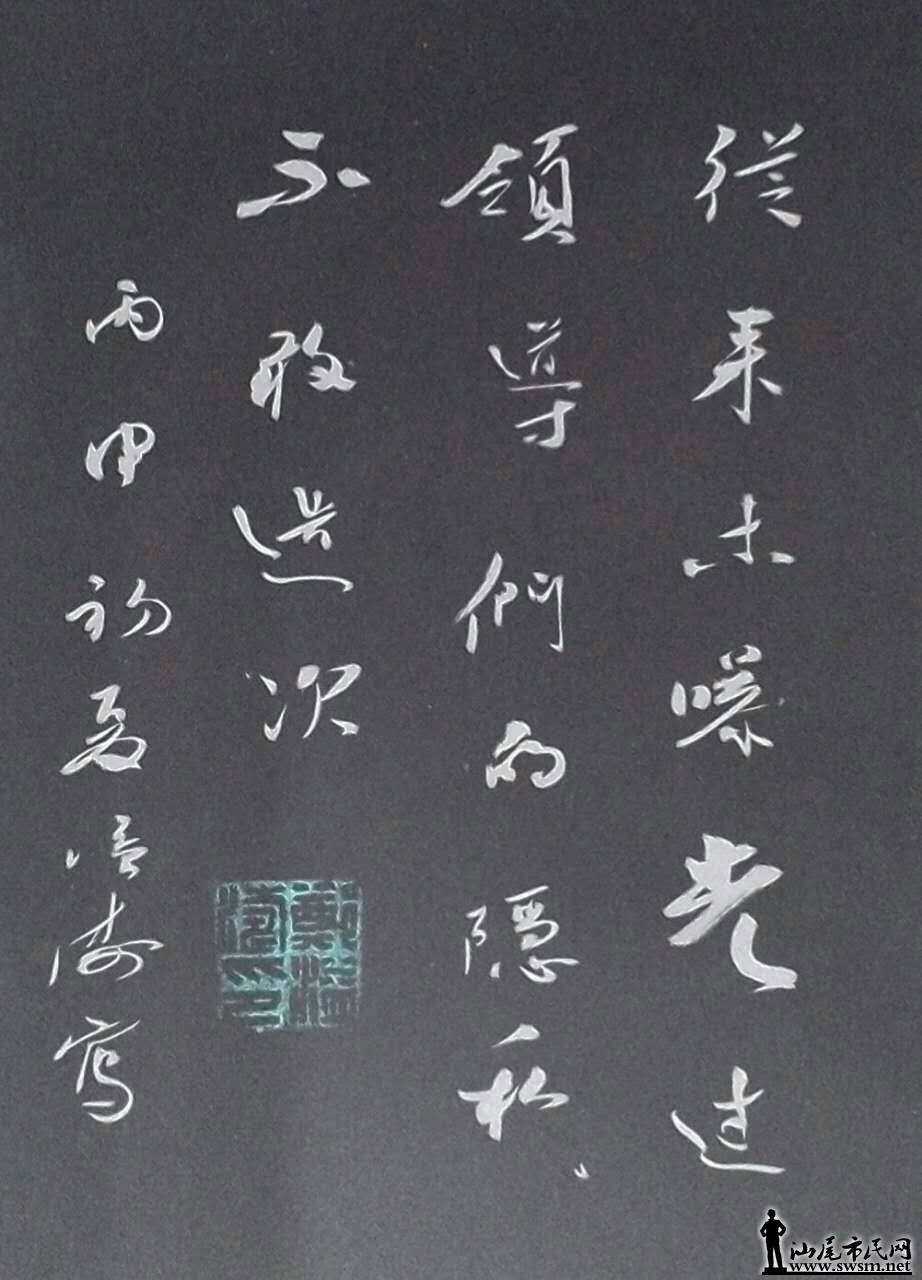 從来未曝光过
領導們的隠私、
不敢造次
丙申初夏培海寫
汕尾市民网
www.swsm.net